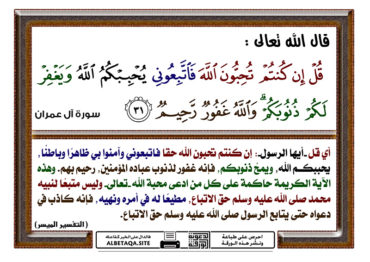 قال الله تعالى :
قُلْ إِن كُنتُمْ تُحِبُّونَ اللَّهَ فَاتَّبِعُونِي يُحْبِبْكُمُ اللَّهُ وَيَغْفِرْ
لَكُمْ ذُنُوبَكُمْ ۗ وَاللَّهُ غَفُورٌ رَّحِيمٌ ﴿٣١﴾ سورة آل عمران
أي قل ـ أيها الرسول ـ: إن كنتم تحبون الله حقا فاتبعوني وآمنوا بي ظاهرًا وباطنًا،
يحببكم الله، ويمحُ ذنوبكم، فإنه غفور لذنوب عباده المؤمنين، رحيم بهم. وهذه
الآية الكريمة حاكمة على كل من ادعى محبة الله ـ تعالى ـ وليس متبعًا لنبيه
محمد صلى الله عليه وسلم حق الاتباع، مطيعًا له في أمره ونهيه، فإنه كاذب في
دعواه حتى يتابع الرسول صلى الله عليه وسلم حق الاتباع.
( التفسير الميسر )
احرص على طباعة
ونشر هذه الورقة
فالدال على الخير كفاعله
ALBETAQA.SITE